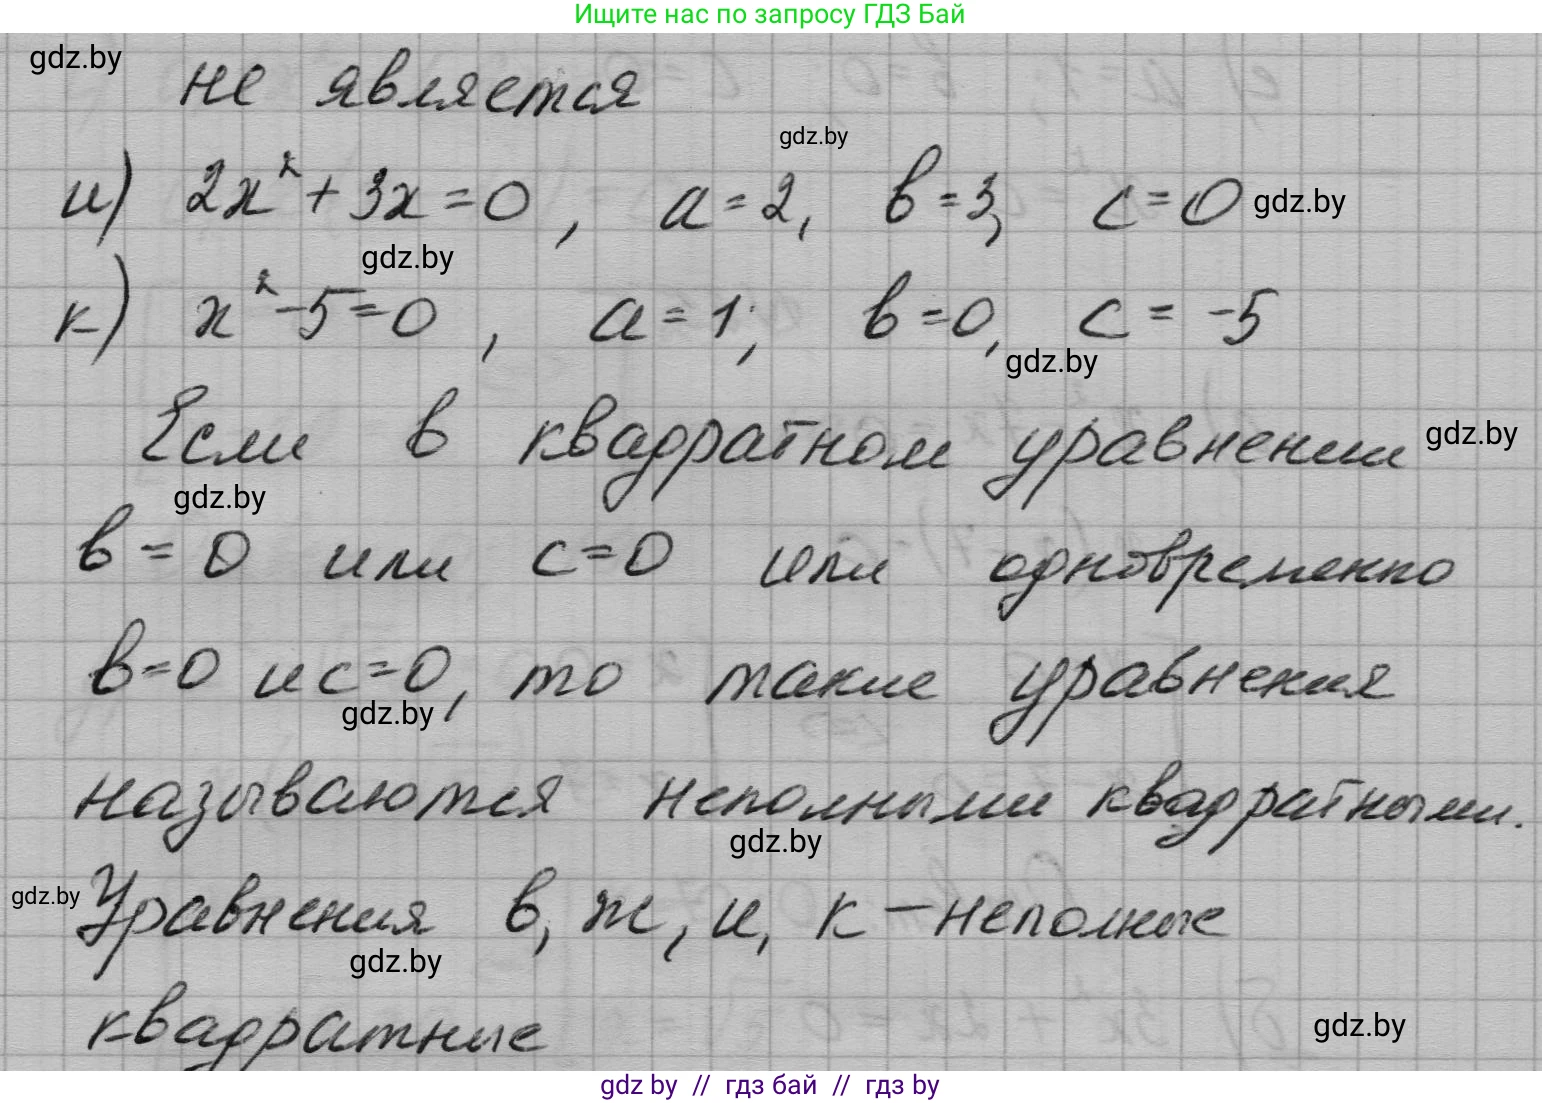 Ищите нас по запросу ГДЗ Бай
gdz.by
не является
gdz.by
и) 2x² + 3x = 0, a = 2, в = 3, c = 0 gdz.by
gdz.by
к) x² - 5 = 0, a = 1, в = 0, c = -5
gdz.by
Если в квадратном уравнении gdz.by
gdz.by
в = 0 или c = 0 или одновременно
в = 0 и c = 0, то такие уравнения
gdz.by
называются неполными квадратными.
gdz.by
gdz.by Уравнения в, ж, и, к – неполные
gdz.by
квадратные
gdz.by
gdz by // гдз бай // гдз by